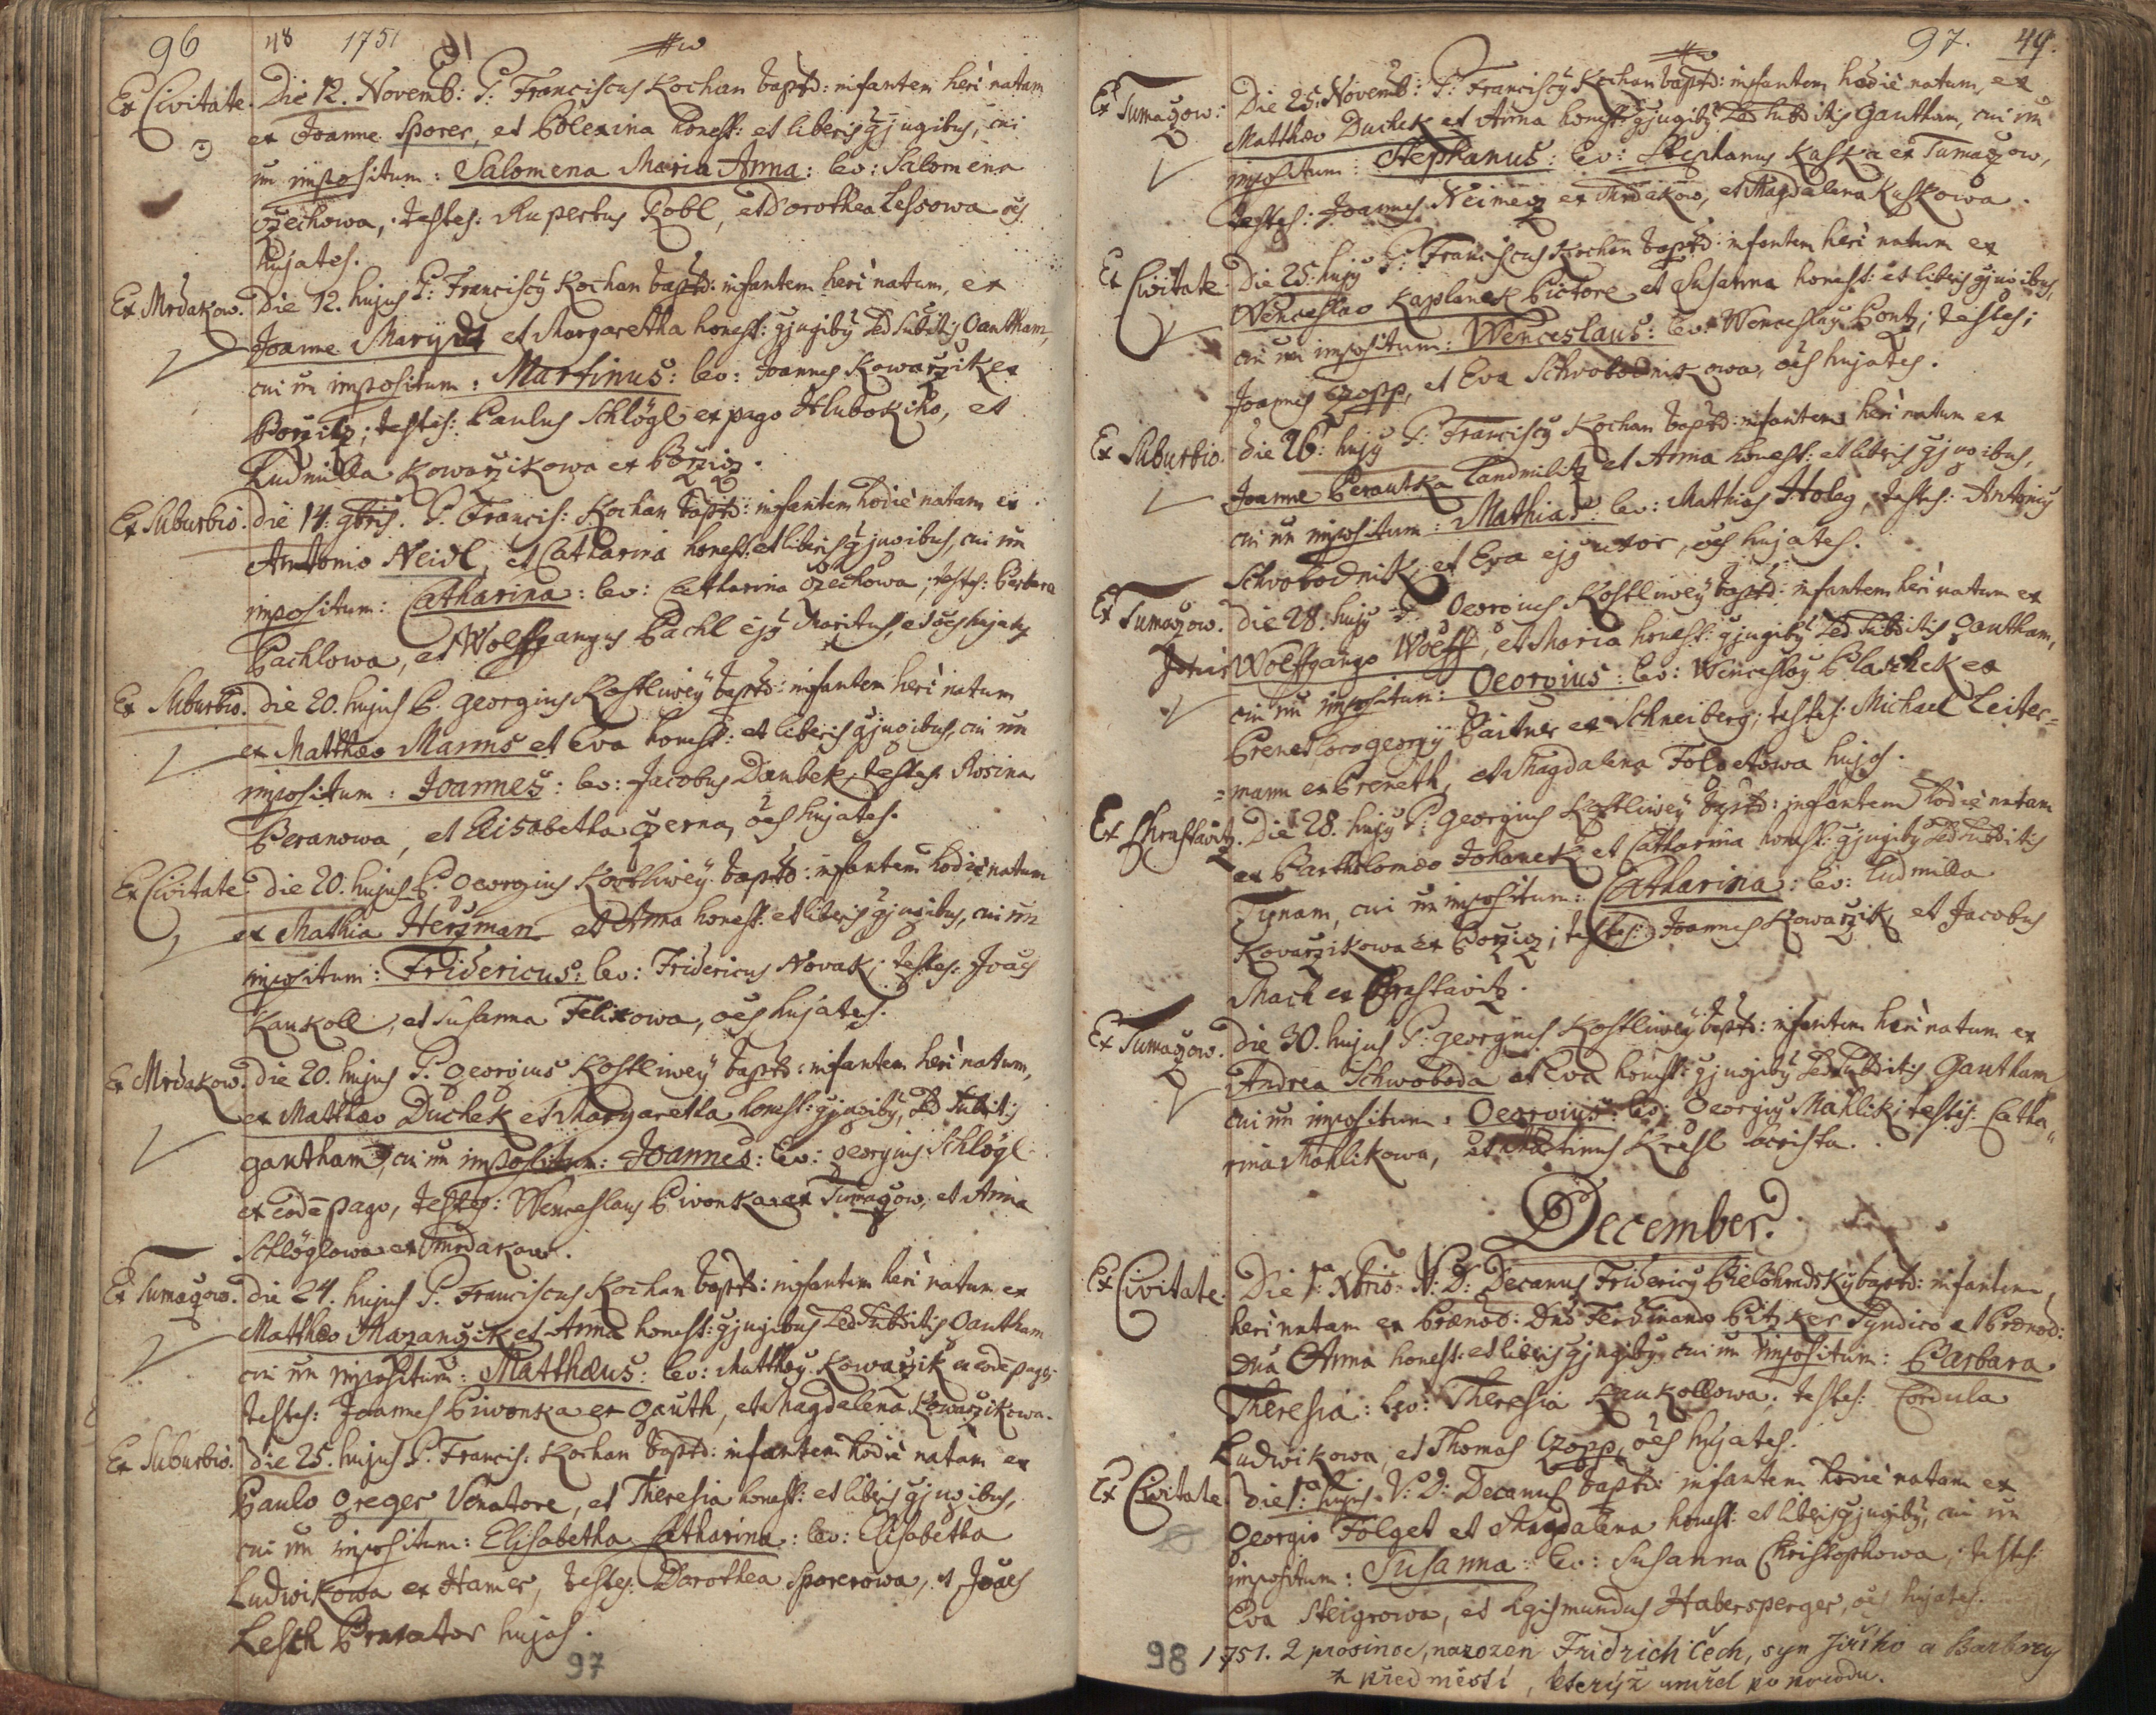 96 48 1751
Ex Civitate. Die 12. Novemb: P: Franciscus Kochan baptd: infantem heri natam
ex Joanne Sporer, et Polexina honest: et liberis gjugibus, cui
nn impositum: Salomena Maria Anna: lev: Salomena
Czechowa, testes: Rupertus Robl, et Dorothea Lessowa oēs
hujates.
Ex Mrdakow. Die 12. hujus P: Franciscg Kochan baptd: infantem heri natum, ex
Joanne et Margaretha honest: gjugibg Led Subditis Gautham,
cui nn impositum: Martinus: lev: Joannes Kowarzik ex
Borzitz; testes: Paulus Schlögl ex pago Hlubokiho, et
Ludmilla Kowarzikowa ex Borzicz.
Ex Suburbio. die 14. 9bris. P. Francis: Kochan baptd: infantem hodiè natam ex
Antonio Neidl, et Catharina honest: et liberis gjugibus, cui nn
impositum: Catharina: lev: Catharina Czechowa; testes: Barbara
Pachlowa, et Wolffgangus Pachl ejg Maritus, oēs hujates
Ex Suburbio. die 20. hujus P. Georgius Kostliwey baptd: infantem heri natum
ex Matthæo Manns et Eva honest: et liberis gjugibus, cui nn
impositum: Joannes: lev: Jacobus Daubek, testes: Rosina
Beranowa, et Elisabetha Czerna, oēs hujates.
Ex Civitate die 20. hujus P. Georgius Kostliwey baptd: infantem hodiè natum
ex Mathia Herzman et Anna honest: et liberis gjugibus, cui nn
impositum: Fridericus: lev: Fridericus Novak; testes: Joaēs
Kaukoll, et Susanna Felixowa, oēs hujates.
Ex Mrdakow. die 20. hujus P. Georgius Kostliwey baptd: infantem heri natum,
ex Matthæo Duchek et Margaretha honest: gjugibg, Led Subditis
Gautham, cui nn impositum: Joannes: lev: Georgius Schlögl
ex eodē pago, testes: Wenceslaus Piwonka ex Tumaczow, et Anna
Schlöglowa ex Mrdakow.
Ex Tumaczow. die 24. hujus P. Franciscus Kochan baptd: infantem heri natum ex
Matthæo Mazanczik et Anna honest: gjugibus Led Subditis Gautham
cui nn impositum: Matthæus: lev: Matthæg Kowarzik ex eodē pago;
testes: Joannes Piwonka ex Gauth, et Magdalena Kowarzikowa.
Ex Suburbio. die 25. hujus P. Francis: Kochan baptd: infantem hodiè natam ex
Paulo Greger Venatore, et Theresia honest: et liberis gjugibus,
cui nn impositum: Elisabetha Catharina: lev: Elisabetha
Ludwikowa ex Hamer, testes: Dorothea Sporerowa, et Joaēs
Lesch hujas.
97
97. 49.
Ex Tumaczow: Die 25. Novemb: P: Franciscg Kochan baptd: infantem hodiè natum, ex
Matthæo Duchek et Anna honest: gjugibg Led Subditis Gautham, cui nn
impositum: Stephanus: lev: Stephanus Kaska ex Tumaczow,
testes: Joannes Neimecz ex Mrdakow, et Magdalena Kaskowa.
Ex Civitate. Die 25. hujg P: Franciscus Kochan baptd: infantem heri natum ex
Wenceslao Kaplanek Pictore et Susanna honest: et liberis gjugibus,
cui nn impositum: Wenceslaus: lev: Wenceslaus Pontz; testes:
Joannes Czopp, et Eva Schwobodnikowa, oēs hujates.
Ex Suburbio. die 26. hujg P: Franciscg Kochan baptd: infantem heri natum ex
Joanne Berautka Landmilitz et Anna honest: et liberis gjugibus,
cui nn impositum: Mathias: lev: Mathias Holeg, testes: Antonig
Schwobodnik, et Eva ejg uxor, oēs hujates.
Ex Tumaczow. die 28. hujg P. Georgius Kostliwey baptd: infantem heri natum ex
Wolffgango Wolff, et Maria honest: gjugibg Led Subditis Gautham,
cui nn impositum: Georgius: lev: Wenceslag Plaschek ex
Prenet loco Georgij Paitner ex Schneiberg; testes: Michael Leiter=
=mann ex Preneth, et Magdalena Folgetowa hujas.
Ex Chrastawitz. Die 28. hujg P: Georgius Kostliwey baptd: infantem hodiè natam
ex Bartholomæo Johanek et Catharina honest: gjugibg Led Subditis
Tÿnam, cui nn impositum: Catharina: lev: Ludmilla
Kovarzikowa ex Borzicz; testes: Joannes Kowarzik, et Jacobus
Mach ex Chrastavitz.
Ex Tumaczow. die 30. hujus P: Georgius Kostliwey baptd: infantem heri natum ex
Andrea Schwoboda et Eva honest: gjugibg Led Subditis Gautham
cui nn impositum: Georgius: lev: Georgig Mahlik; testes: Catha"
rina Mahlikowa, et Martinus Kresl
December.
Ex Civitate. Die 1ª Xbris: V: D: Decanus Fridericg Bielohradsky baptd: infantem,
heri natam ex Prænob: Dno Ferdinando Pitzker Syndico et Prænob:
Dna Anna honest: et liberis gjugibg, cui nn impositum: Barbara
Theresia: lev: Theresia Kaukollowa; testes: Cordula
Ludwikowa, et Thomas Czopp, oēs hujates.
Ex Civitate. die 1ª hujus V: D: Decanus baptd: infantem hodiè natam ex
Georgio Folget et Magdalena honest: et liberis gjugibg, cui nn
impositum: Susanna: lev: Susanna Christophowa, testes:
Eva Steigrowa, et Sigismundus Habersperger, oēs hujates.
98 1751. 2 prosince, narozen Fridrich Čech, syn Jiřího a Barbory
z předměstí, kterýž umřel po porodu.